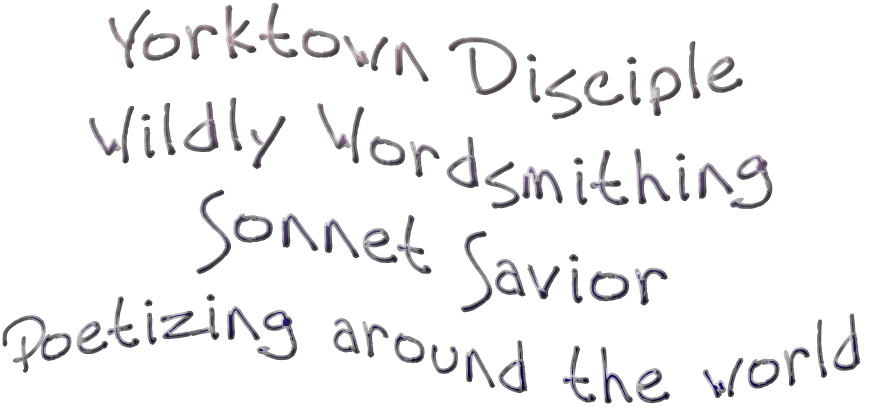 Yorktown Disciple
Wildly Wordsmithing
Sonnet Savior
Poetizing around the world